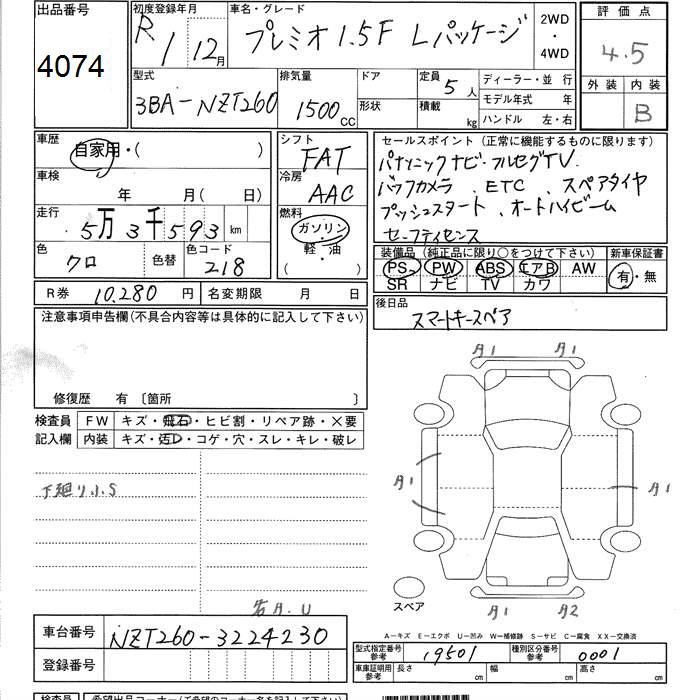 出品番号
4074
初度登録年月
R 1 12月
車名・グレード
プレミオ 1.5F Lパッケージ
2WD
・
4WD
評価点
4.5
外装 内装
B
型式
3BA-NZT260
排気量
1500 CC
ドア
形状
定員 5 人
積載 kg
ディーラー・並行
モデル年式 年
ハンドル 左・右
車歴
自家用・( )
車検
年 月( 日)
走行
5万3千593 km
色
クロ
色替
色コード
218
シフト
FAT
冷房
AAC
燃料
ガソリン
軽・油
( )
セールスポイント(正常に機能するものに限ります)
パナソニックナビ・フルセグTV
バックカメラ、ETC、スペアタイヤ
プッシュスタート、オートハイビーム
セーフティセンス
装備品(純正品に限り○をつけて下さい)
PS PW ABS エアB AW
SR ナビ TV カワ
新車保証書
有・無
R券 10,280 円
名変期限 月 日
後日品
スマートキースペア
注意事項申告欄(不具合内容等は具体的に記入して下さい)
修復歴 有 〔箇所 〕
検査員
記入欄
FW キズ・飛石・ヒビ割・リペア跡・×要
内装 キズ・汚レ・コゲ・穴・スレ・キレ・破レ
下廻り小S
右A.U
A1 A1
A1
A1
A1 A2
スペア
A-キズ E-エクボ U-凹み W-補修跡 S-サビ C-腐食 XX-交換済
車台番号
NZT260-3224230
登録番号
型式指定番号
参考
19501
種別区分番号
参考
0001
車庫証明用
参考
長さ cm
幅 cm
高さ cm